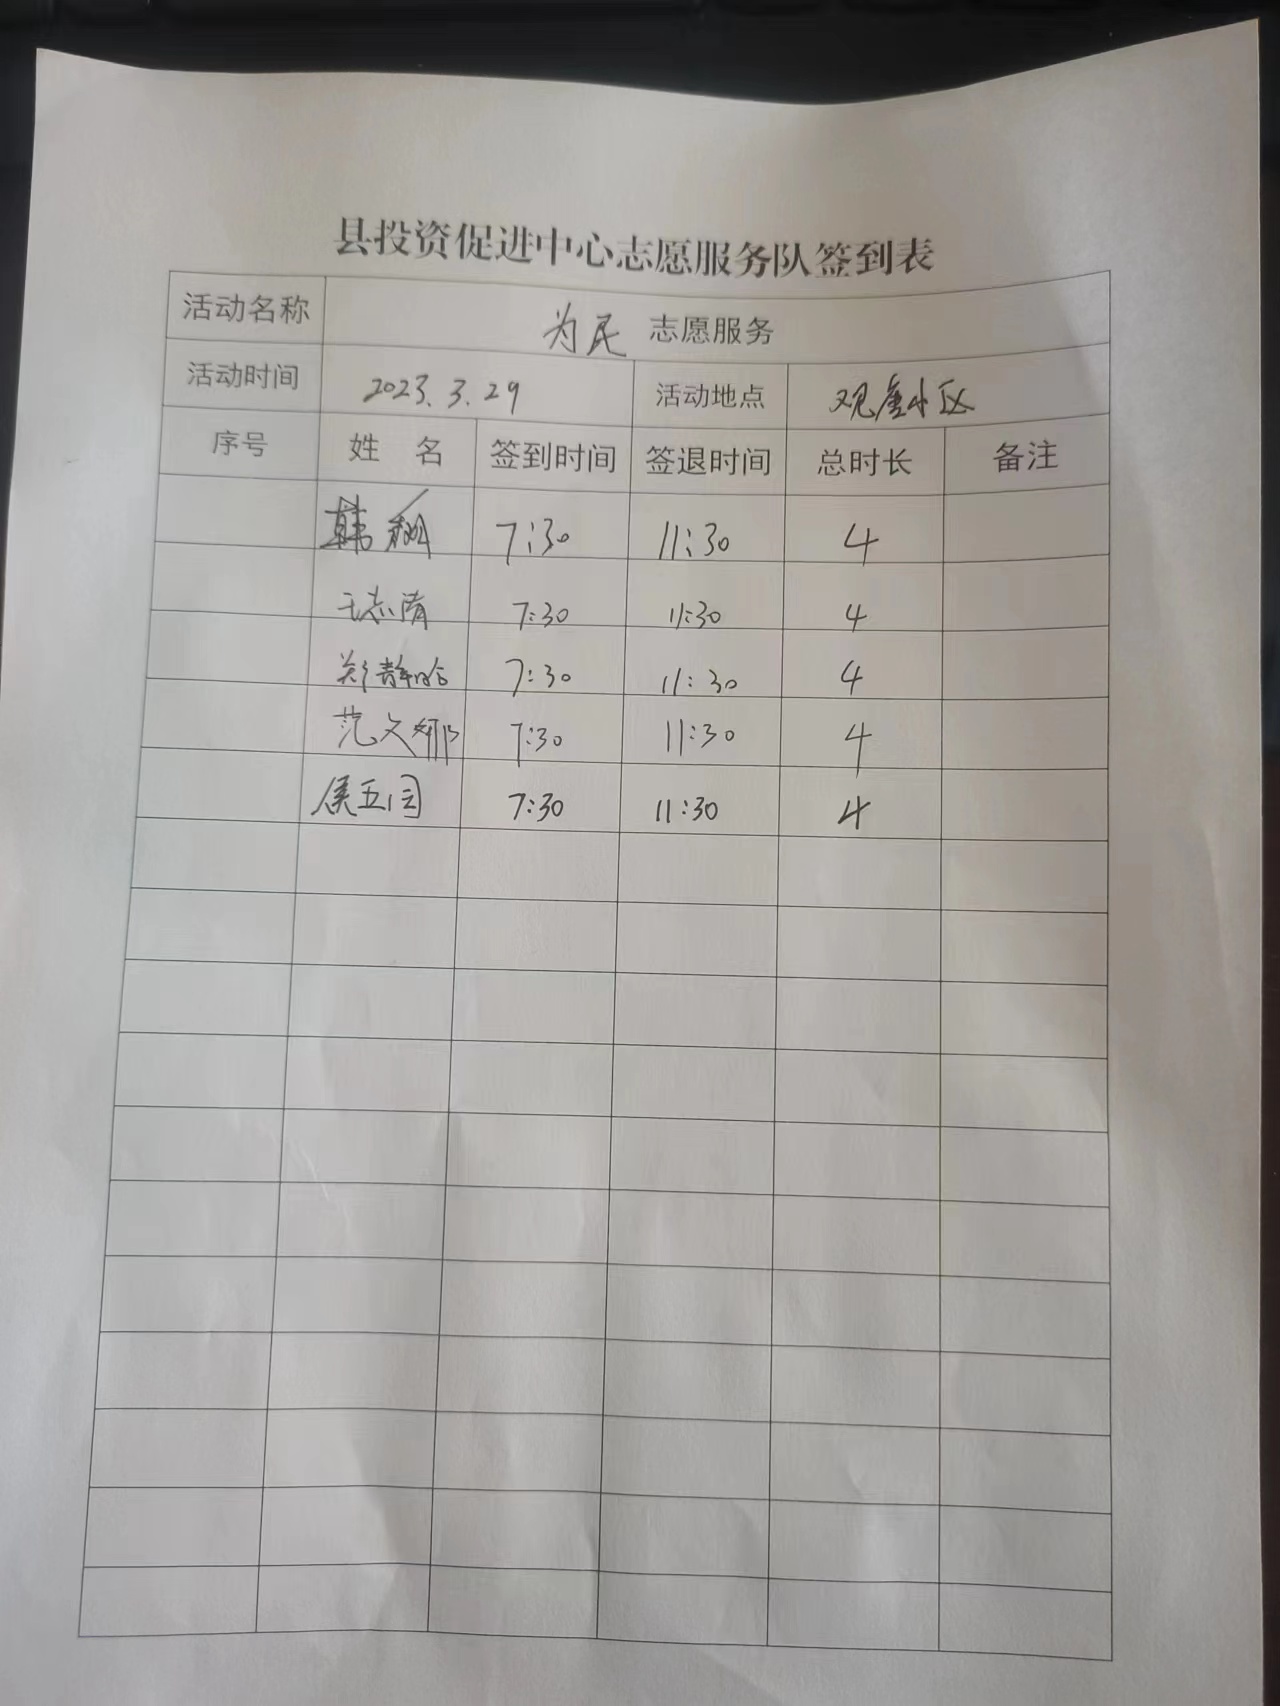 县投资促进中心志愿服务队签到表
活动名称 为民 志愿服务
活动时间 2023.3.29 活动地点 观唐小区
序号 姓 名 签到时间 签退时间 总时长 备注
韩 7:30 11:30 4
王志 7:30 11:30 4
郑静晗 7:30 11:30 4
范文娜 7:30 11:30 4
侯五闫 7:30 11:30 4